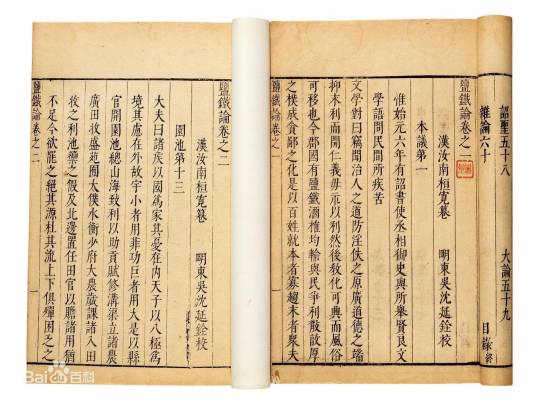 詔聖五十八 大論五十九
雜論六十 目錄終
鹽鐵論卷之一
漢汝南桓寬譔 明東吳沈延銓校
本議第一
惟始元六年有詔書使丞相御史與所舉賢良文
學語問民間所疾苦
文學對曰竊聞治人之道防淫佚之原廣道德之端
抑末利而開仁義毋示以利然後教化可興而風俗
可移也今郡國有鹽鐵酒榷均輸與民爭利散敦厚
之樸成貪鄙之化是以百姓就本者寡趨末者衆夫
鹽鐵論卷之一 一
鹽鐵論卷之二
漢汝南桓寬譔 明東吳沈延銓校
園池第十三
大夫曰諸侯以國爲家其憂在內天子以八極爲
境其慮在外故宇小者用菲功巨者用大是以縣
官開園池總山海致利以助貢賦修溝渠立諸農
廣田收盛苑囿太僕水衡少府大農歲課諸入田
牧之利池籞之假及北邊置任田官以贍諸用猶
不足今欲罷之絕其源杜其流上下俱殫困乏之
鹽鐵論卷之二 一
Bai百科